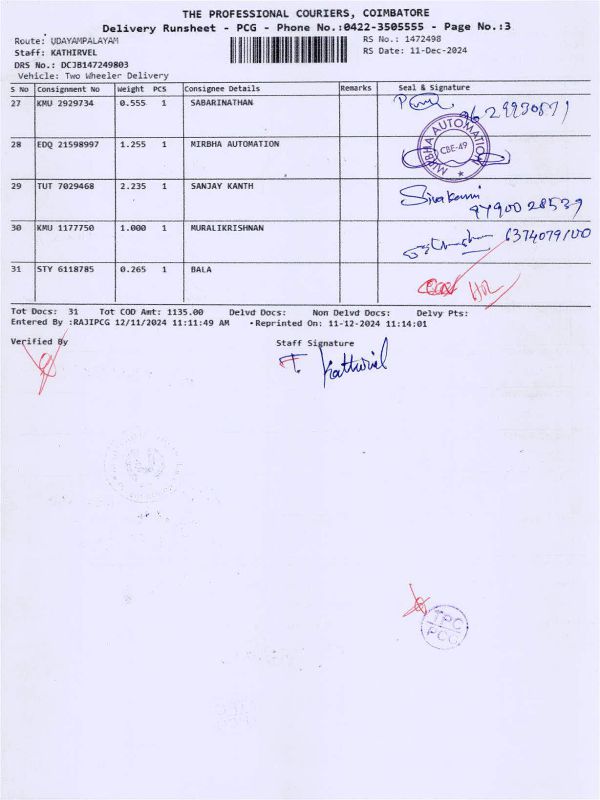 THE PROFESSIONAL COURIERS, COIMBATORE
Delivery Runsheet - PCG - Phone No.:0422-3505555 - Page No.:3
Route: UDAYAMPALAYAM RS No.: 1472498
Staff: KATHIRVEL RS Date: 11-Dec-2024
DRS No.: DCJB147249803
Vehicle: Two Wheeler Delivery
S No Consignment No Weight PCS Consignee Details Remarks Seal & Signature
27 KMU 2929734 0.555 1 SABARINATHAN
28 EDQ 21598997 1.255 1 MIRBHA AUTOMATION MIRBHA AUTOMATION CBE-49
29 TUT 7029468 2.235 1 SANJAY KANTH Sivakami
9790028539
30 KMU 1177750 1.000 1 MURALIKRISHNAN 6374079100
31 STY 6118785 0.265 1 BALA
Tot Docs: 31 Tot COD Amt: 1135.00 Delvd Docs: Non Delvd Docs: Delvy Pts:
Entered By :RAJIPCG 12/11/2024 11:11:49 AM •Reprinted On: 11-12-2024 11:14:01
Verified By Staff Signature
T. Kathirvel
TPC
PCG